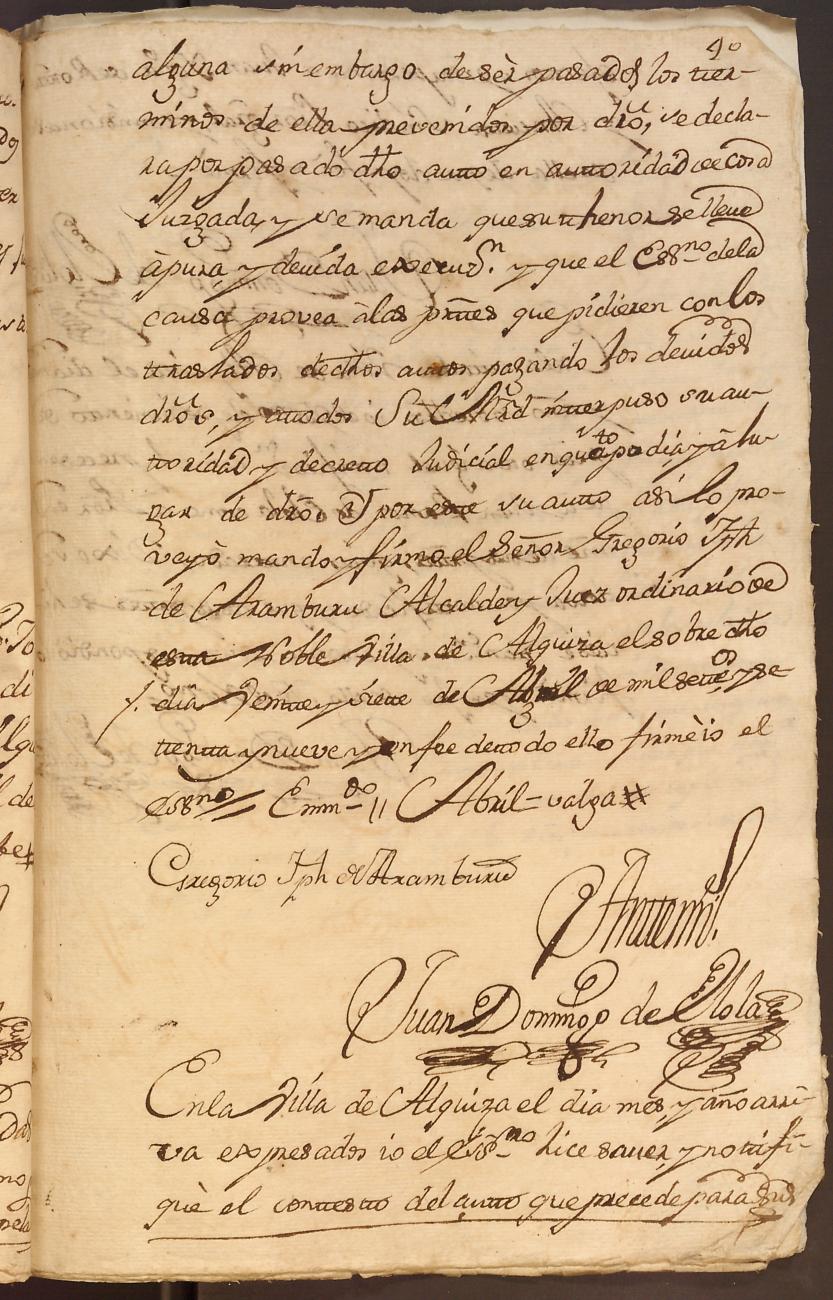 4º
alguna sin embargo de sèr pasados los ter-
minos de ella prevenidos por dró, se decla-
ra por pasado dho autto en auttoridad de cosa
Juzgada, y se manda que su thenor se lleve
à pura, y devida execuzn. y que el Essno dela
causa provea à las prttes que pidieren con los
traslados de dhos auttos pagando los devidos
dros, y attodos Su Mrd interpuso su au-
ttoridad y decretto Judicial en qto podia, y à lu-
gar de dró. Y por este su autto asi lo pro-
veyò mando y firmo el Señor Gregorio Jph
de Aramburu Alcalde y Juez ordinario de
esta Noble Villa de Alquiza el sobre dho
dia Veinte y siette de Abril de mil settos y se-
tenta y nueve y en fee de todo ello firmè io el
Essno // Emmdo // Abril = valga #
Gregorio Jph de Aramburu
Anttemi
Juan Domingo de Elola
En la Villa de Alquiza el dia mes y año arri-
va expresados io el Essno hice saver, y notifi-
què el contesto del autto que precede para sus